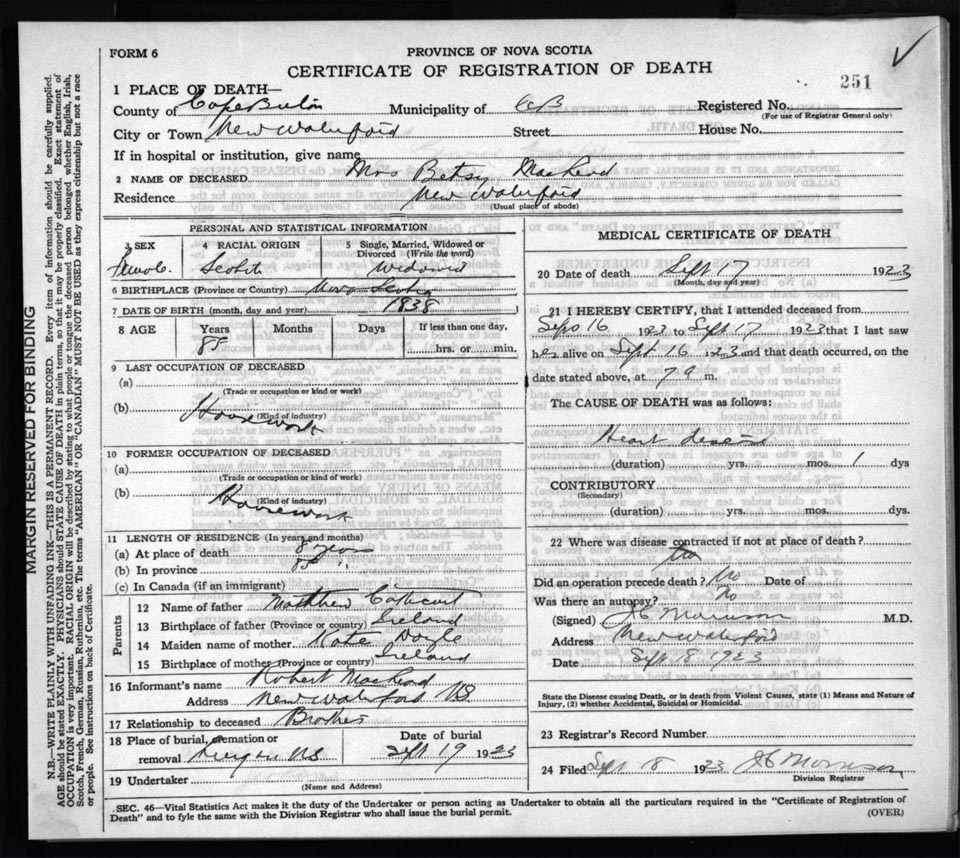 FORM 6
PROVINCE OF NOVA SCOTIA
CERTIFICATE OF REGISTRATION OF DEATH
251
1 PLACE OF DEATH—
County of Cape Breton Municipality of C B Registered No.
(For use of Registrar General only)
City or Town New Waterford Street House No.
If in hospital or institution, give name
2 NAME OF DECEASED Mrs Betsy MacLeod
Residence New Waterford
(Usual place of abode)
PERSONAL AND STATISTICAL INFORMATION
3 SEX 4 RACIAL ORIGIN 5 Single, Married, Widowed or Divorced (Write the word)
Female Scotch Widowed
6 BIRTHPLACE (Province or Country) Nova Scotia
7 DATE OF BIRTH (month, day and year) 1838
8 AGE Years Months Days If less than one day,
85 hrs. or min.
9 LAST OCCUPATION OF DECEASED
(a)
(Trade or occupation or kind or work)
(b) Housework
(Kind of industry)
10 FORMER OCCUPATION OF DECEASED
(a)
(Trade or occupation or kind or work)
(b) Housework
(Kind of industry)
11 LENGTH OF RESIDENCE (In years and months)
(a) At place of death 8 years
(b) In province 85 "
(c) In Canada (if an immigrant)
Parents
12 Name of father Matthew Cathcart
13 Birthplace of father (Province or country) Ireland
14 Maiden name of mother Kate Doyle
15 Birthplace of mother (Province or country) Ireland
16 Informant's name Robert MacLeod
Address New Waterford NS
17 Relationship to deceased Brother
18 Place of burial, cremation or removal NS Date of burial Sept 19 1923
19 Undertaker
(Name and Address)
MEDICAL CERTIFICATE OF DEATH
20 Date of death Sept 17 1923
(Month, day and year)
21 I HEREBY CERTIFY, that I attended deceased from
Sept 16 1923 to Sept 17 1923 that I last saw
her alive on Sept 16 1923 and that death occurred, on the
date stated above, at 7 a m.
The CAUSE OF DEATH was as follows:
Heart disease
(duration) yrs. mos. 1 dys
CONTRIBUTORY
(Secondary)
(duration) yrs. mos. dys.
22 Where was disease contracted if not at place of death?
Did an operation precede death? No Date of
Was there an autopsy? No
(Signed) J C Morrison M.D.
Address New Waterford
Date Sept 18 1923
State the Disease causing Death, or in death from Violent Causes, state (1) Means and Nature of
Injury, (2) whether Accidental, Suicidal or Homicidal.
23 Registrar's Record Number
24 Filed Sept 18 1923 J C Morrison
Division Registrar
SEC. 46—Vital Statistics Act makes it the duty of the Undertaker or person acting as Undertaker to obtain all the particulars required in the "Certificate of Registration of
Death" and to fyle the same with the Division Registrar who shall issue the burial permit. (OVER)
MARGIN RESERVED FOR BINDING
N.B.—WRITE PLAINLY WITH UNFADING INK—THIS IS A PERMANENT RECORD. Every item of information should be carefully supplied.
AGE should be stated EXACTLY. PHYSICIANS should STATE CAUSE OF DEATH in plain terms, so that it may be properly classified. Exact statement of
OCCUPATION is very important. RACIAL ORIGIN will be described by stating to what people or tongue the deceased person belonged whether English, Irish,
Scotch, French, German, Russian, Ruthenian, etc. The terms "AMERICAN" OR "CANADIAN" MUST NOT BE USED as they express citizenship but not a race
or people. See instructions on back of Certificate.